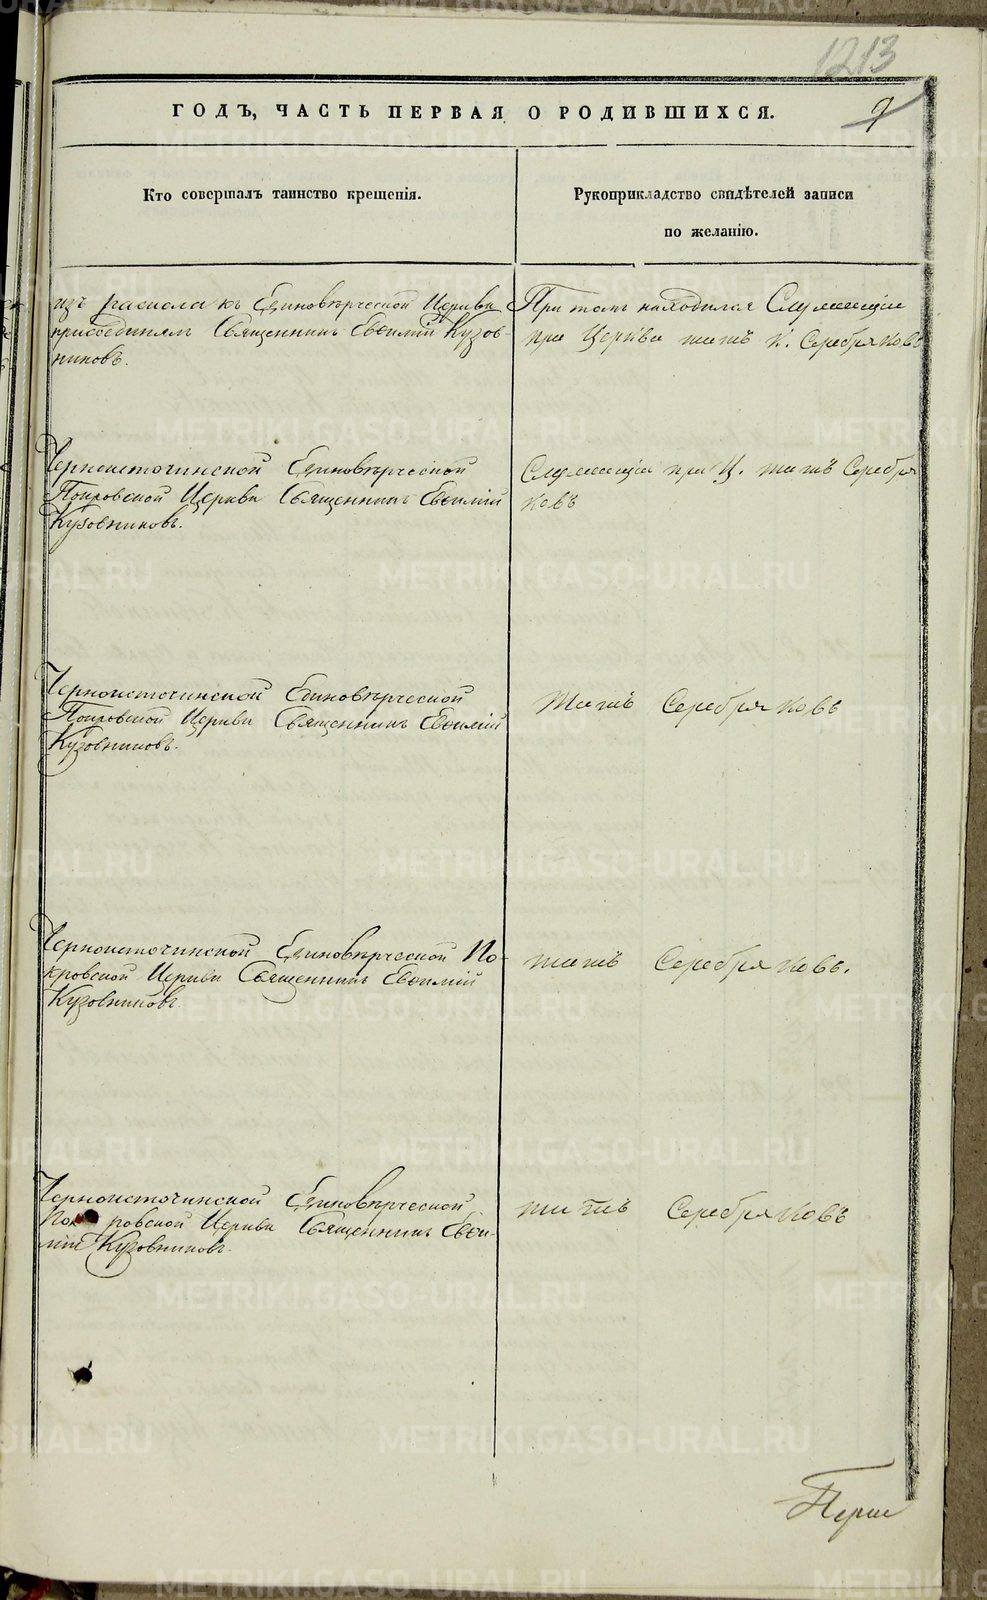 1213
ГОДЪ, ЧАСТЬ ПЕРВАЯ О РОДИВШИХСЯ.
9
Кто совершалъ таинство крещенія.
Рукоприкладство свидѣтелей записи
по желанію.
изъ раскола къ Единовѣрческой Церкви
присоединялъ Священникъ Евѳимій Кузов-
никовъ.
При томъ находился Служащій
при Церкви тит. К. Серебряковъ
Черноисточинской Единовѣрческой
Покровской Церкви Священникъ Евѳимій
Кузовниковъ.
Служащій при Ц. Серебря
ковъ
Черноисточинской Единовѣрческой
Покровской Церкви Священникъ Евѳимій
Кузовниковъ.
Серебряковъ
Черноисточинской Единовѣрческой По-
кровской Церкви Священникъ Евѳимій
Кузовниковъ.
Серебряковъ.
Черноисточинской Единовѣрческой
Покровской Церкви Священникъ Евѳи-
мій Кузовниковъ.
Серебряковъ
METRIKI.GASO-URAL.RU